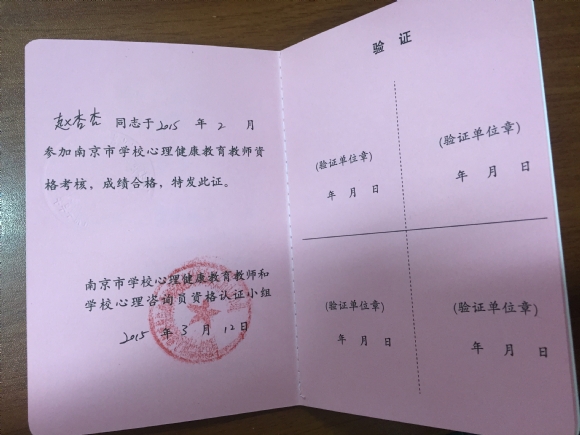 赵杏杏 同志于2015 年 2 月
参加南京市学校心理健康教育教师资
格考核，成绩合格，特发此证。
南京市学校心理健康教育教师和
学校心理咨询员资格认证小组
2015 年 3 月 12日
验 证
(验证单位章)
年 月 日
(验证单位章)
年 月 日
(验证单位章)
年 月 日
(验证单位章)
年 月 日